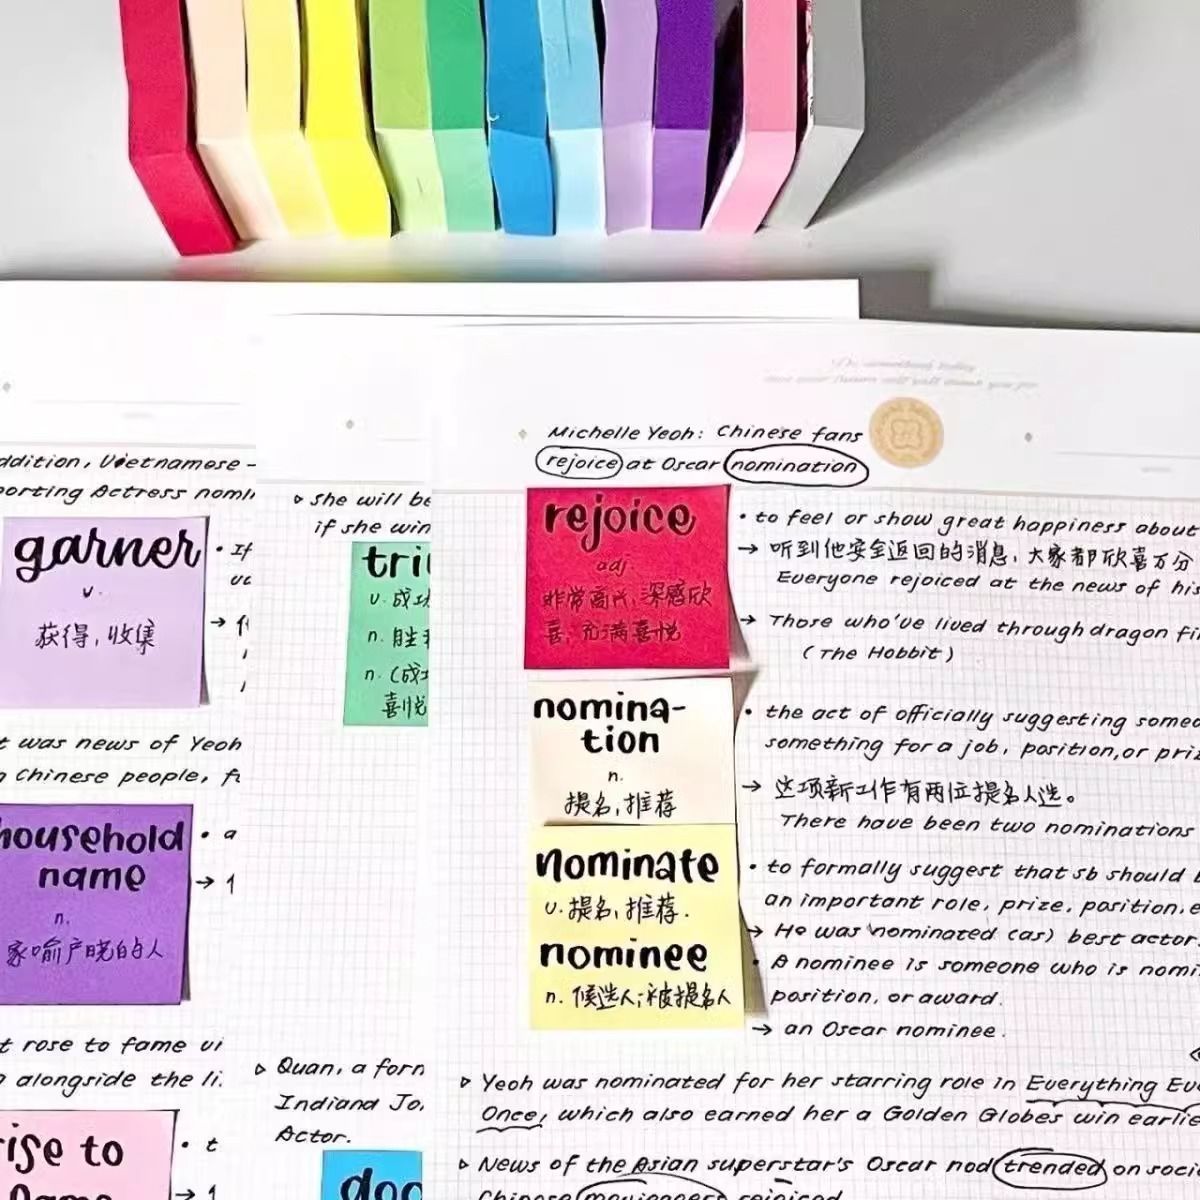 Michelle Yeoh: Chinese fans
rejoice at Oscar nomination
rejoice
adj.
非常高兴,深感欣
喜,充满喜悦
• to feel or show great happiness about
→ 听到他安全返回的消息,大家都欣喜万分
Everyone rejoiced at the news of his
→ Those who've lived through dragon fi
(The Hobbit)
nomina-
tion
n.
提名,推荐
• the act of officially suggesting someo
something for a job, position, or priz
→ 这项新工作有两位提名人选。
There have been two nominations
nominate
v. 提名,推荐.
nominee
n. 候选人;被提名人
• to formally suggest that sb should b
an important role, prize, position, e
→ He was nominated (as) best actor.
• A nominee is someone who is nomi
position, or award.
→ an Oscar nominee.
▹ Yeoh was nominated for her starring role in Everything Eve
Once, which also earned her a Golden Globes win earlie
▹ News of the Asian superstar's Oscar nod trended on soci
Chinese moviegoers rejoiced
▹ she will be
if she win
v. 成功
n. 胜
n. (成功
喜悦
▹ Quan, a form
Indiana Jo
Actor.
doc
ddition, Vietnamese -
porting Actress nomi
garner
v.
获得,收集
• If
→
t was news of Yeoh
Chinese people, f
household
name
n.
家喻户晓的人
• a
→ 1
t rose to fame vi
alongside the li
rise to
fame
• t
→ 1